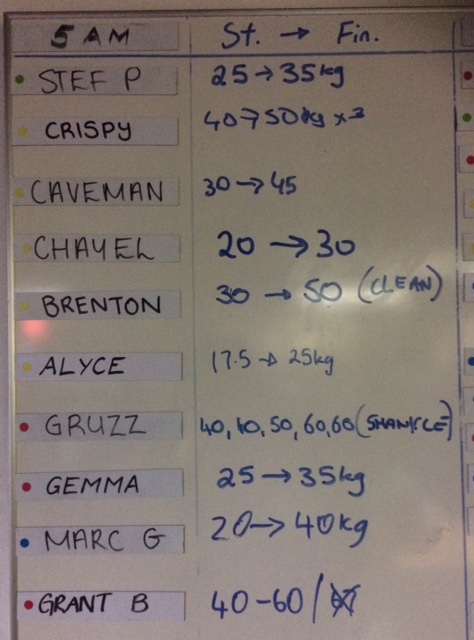 5 AM St. → Fin.
STEF P 25 → 35kg
CRISPY 40→50kg x3
CAVEMAN 30 → 45
CHAYEL 20 → 30
BRENTON 30 → 50 (CLEAN)
ALYCE 17.5 → 25kg
GRUZZ 40, 40, 50, 60, 60 (SHANKLE)
GEMMA 25 → 35kg
MARC G 20 → 40kg
GRANT B 40-60/